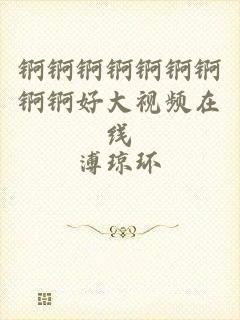 锕锕锕锕锕锕锕
锕锕好大视频在
线
溥琼环